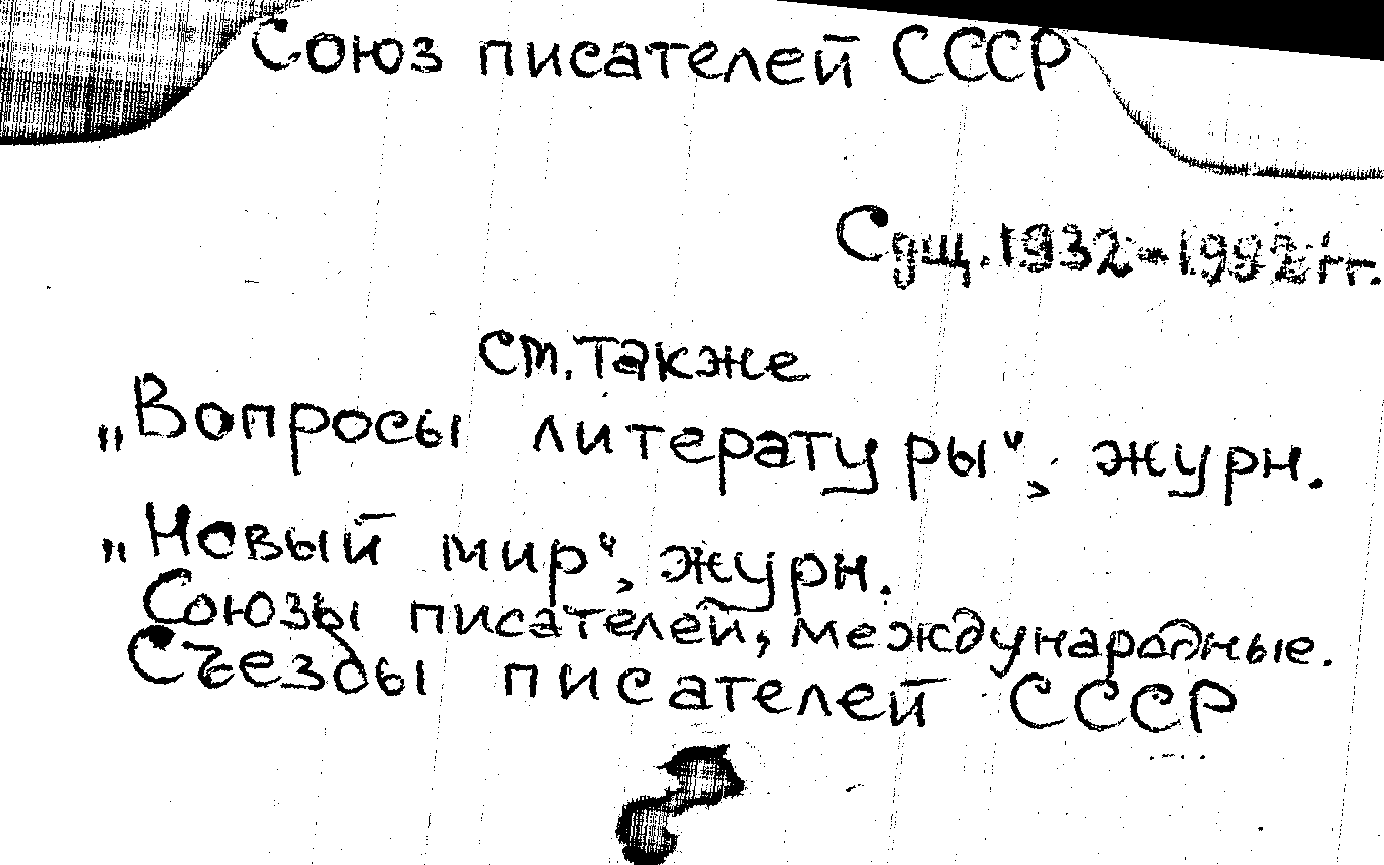 Союз писателей СССР
Сущ. 1932-1992 гг.
см. также
„Вопросы литературы", журн.
„Новый мир", журн.
Союзы писателей, международные.
Съезды писателей СССР